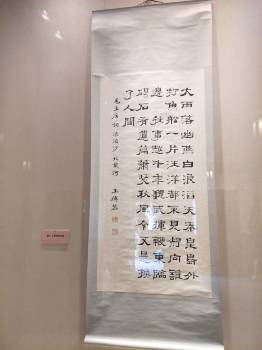 大雨落幽燕白浪滔天秦皇島外
打魚船一片汪洋都不見知向誰
邊往事越千年魏武揮鞭東臨
碣石有遺篇蕭瑟秋風今又是換
了人間
毛主席詞 浪淘沙 北戴河 王